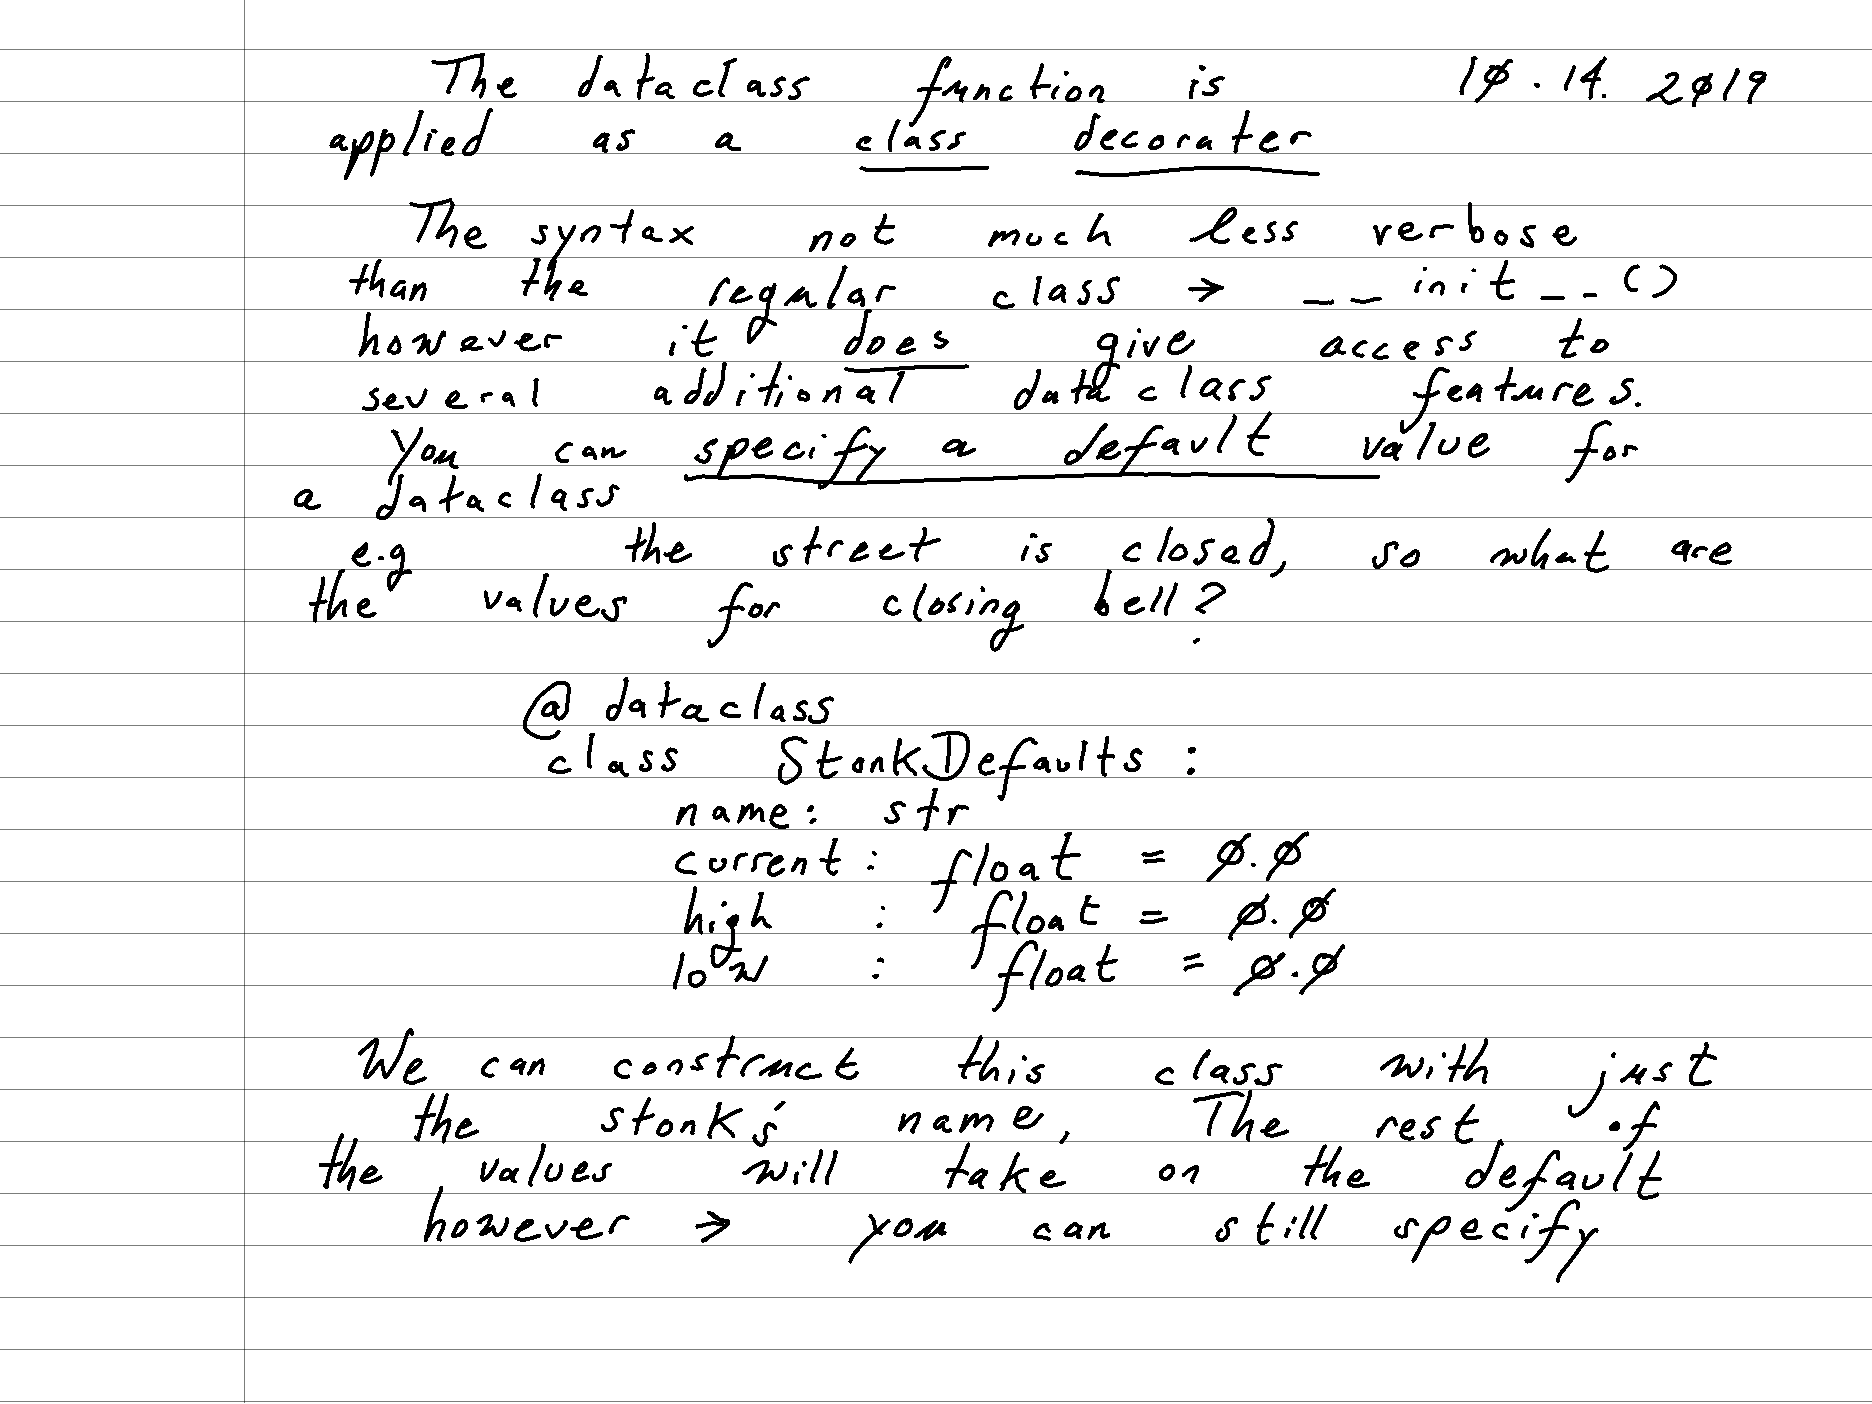 The dataclass function is 10.14.2019
applied as a class decorater
The syntax not much less verbose
than the regular class → __init__()
however it does give access to
several additional dataclass features.
You can specify a default value for
a dataclass
e.g the street is closed, so what are
the values for closing bell?
@dataclass
class StonkDefaults:
name: str
current: float = 0.0
high : float = 0.0
low : float = 0.0
We can construct this class with just
the stonk's name, The rest of
the values will take on the default
however → you can still specify